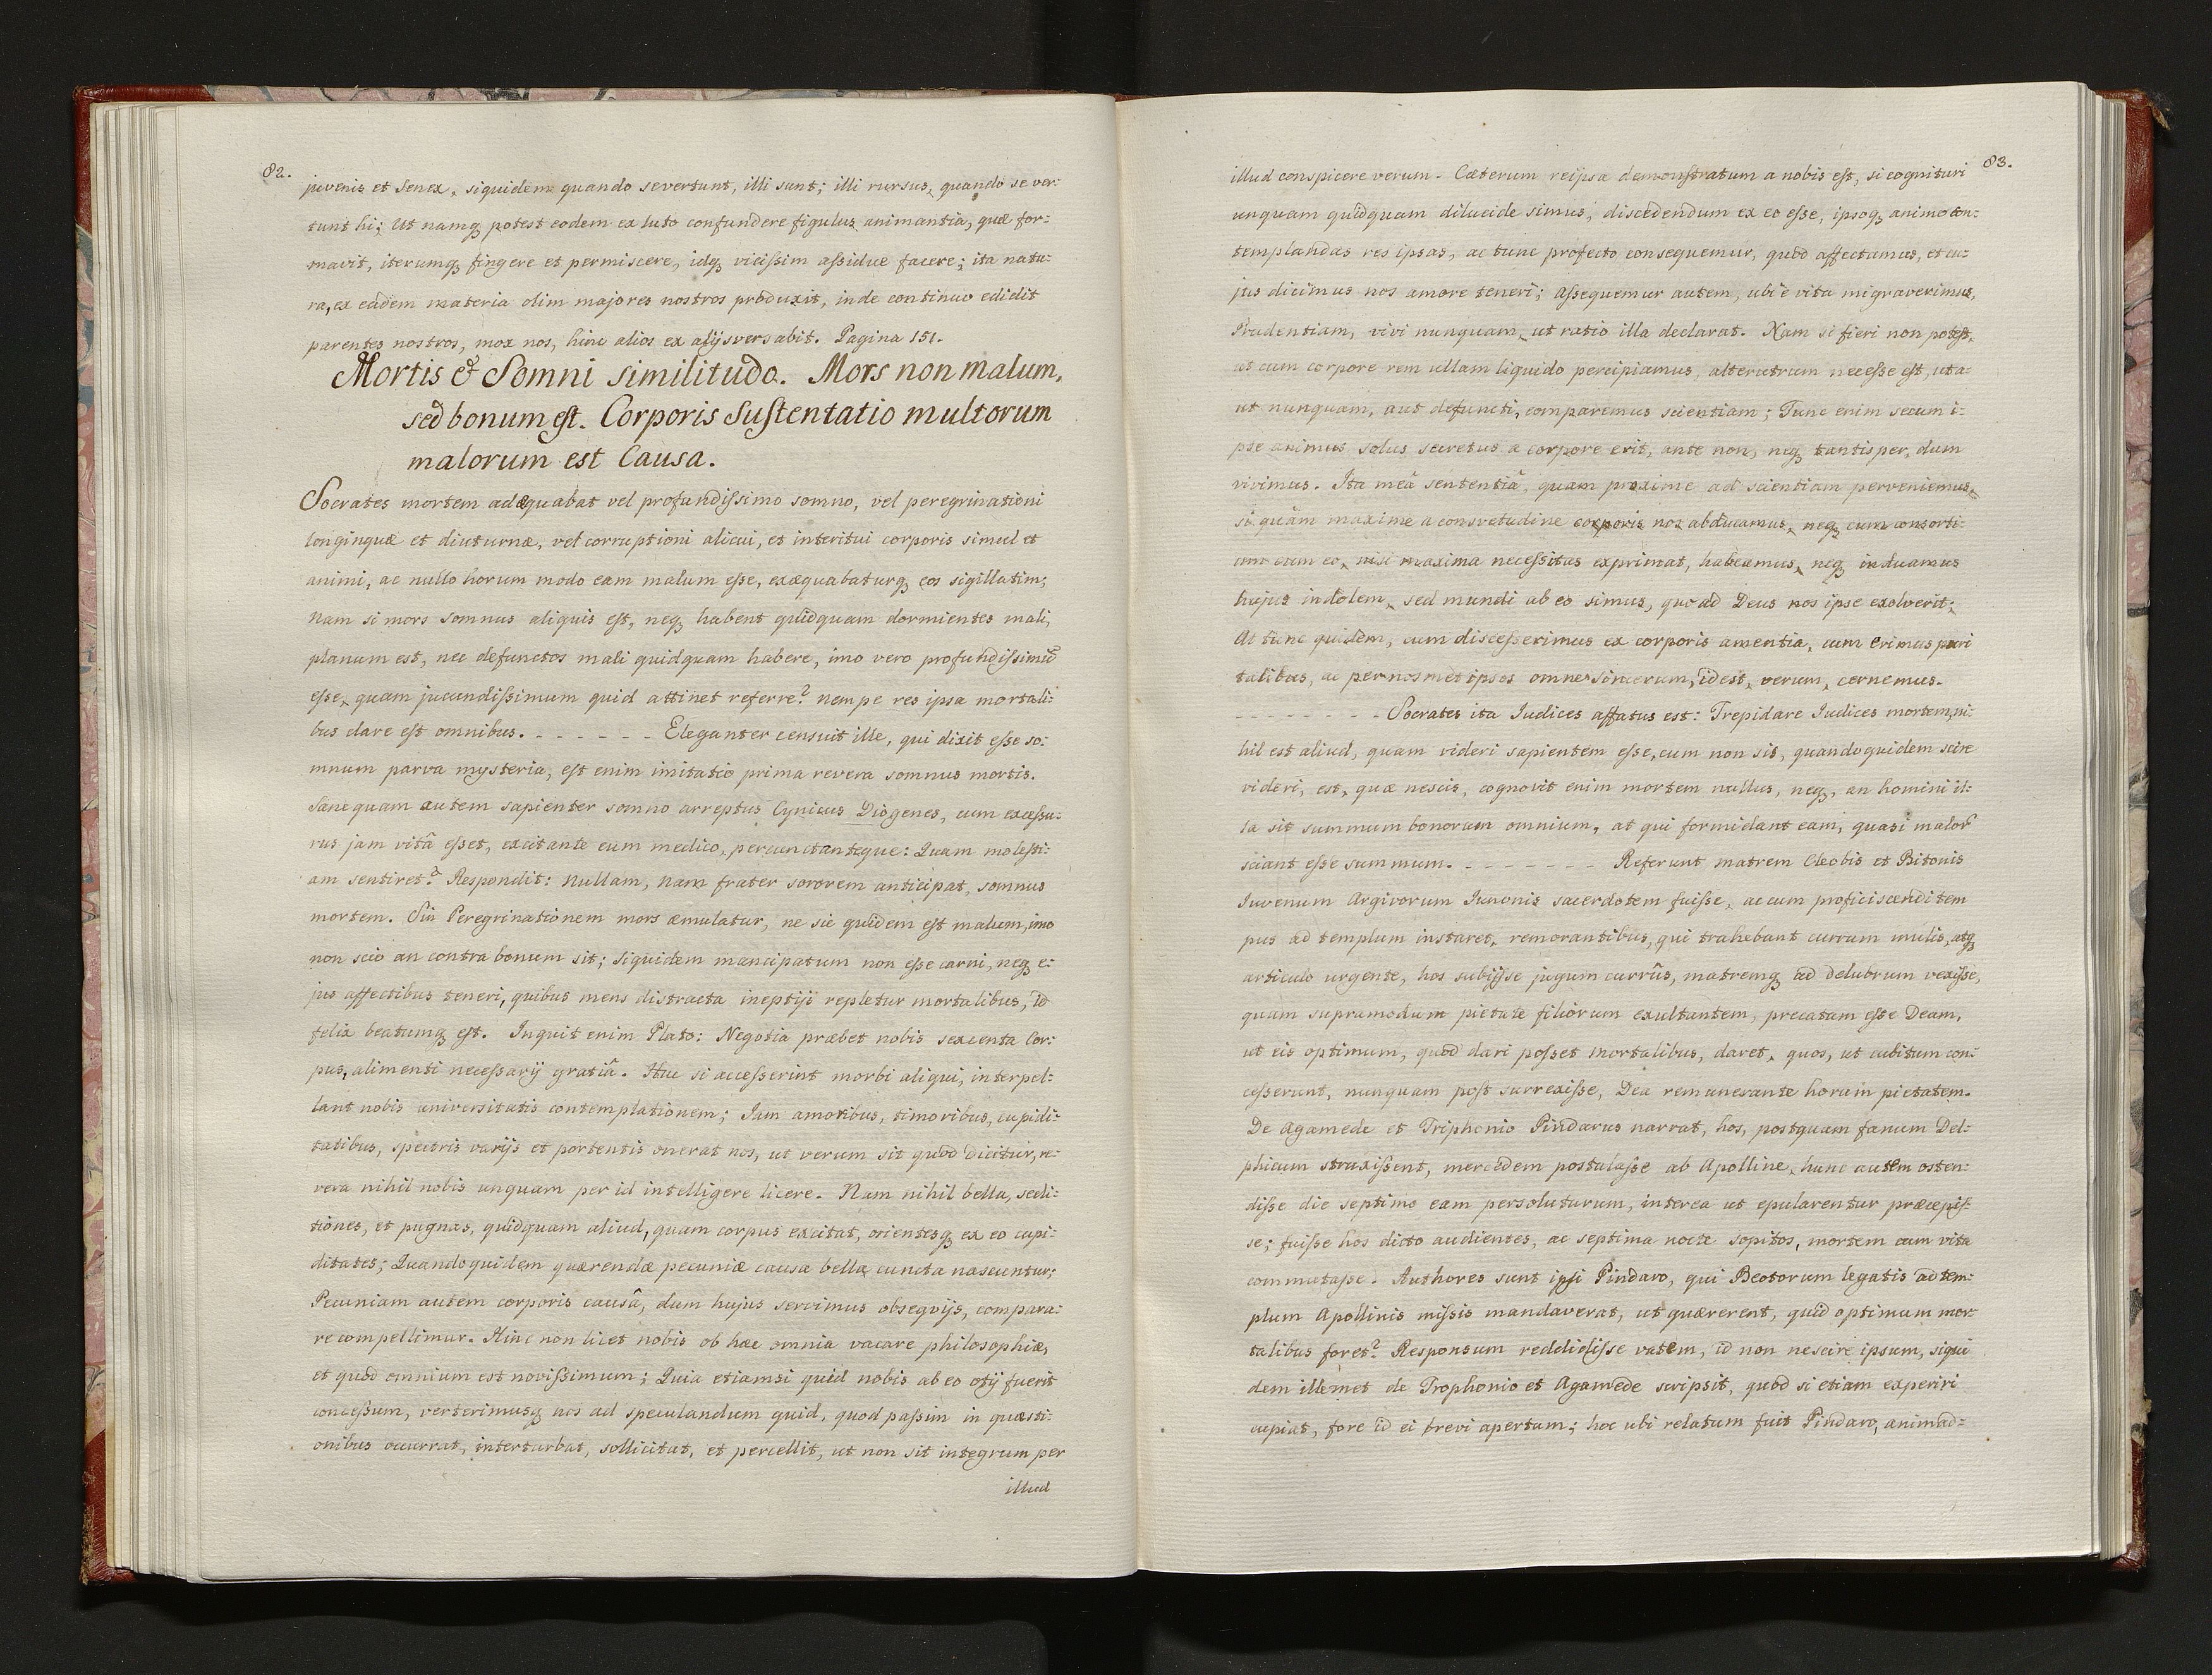 82.
juvenis et Senex, siquidem quando se vertunt, illi sunt; illi rursus, quando se ver:
tunt hi; Ut namq; potest eodem ex luto confundere figulus animantia, quæ for:
mavit, iterumq; fingere et permiscere, idq; vicissim assidue facere; ita natu:
ra, ex eadem materia olim majores nostros produxit, inde continuo edidit
parentes nostros, mox nos, hinc alios ex alijs versabit. Pagina 151.
Mortis & Somni similitudo. Mors non malum,
sed bonum est. Corporis Sustentatio multorum
malorum est Causa.
Socrates mortem adæquabat vel profundissimo somno, vel peregrinationi
longinquæ et diuturnæ, vel corruptioni alicui, et interitui corporis simul et
animi, ac nullo horum modo eam malum esse, exæquabaturq; eos sigillatim;
Nam si mors somnus aliquis est, neq; habent quidquam dormientes mali,
planum est, nec defunctos mali quidquam habere, imo vero profundissimũ
esse, quam jucundissimum quid attinet referre? nempe res ipsa mortali:
bus clare est omnibus. - - - - - - Eleganter censuit ille, qui dixit esse so:
mnum parva mysteria, est enim imitatio prima revera somnus mortis.
Sane quam autem sapienter somno arreptus Cynicus Diogenes, cum excessu:
rus jam vitâ esset, excitante eum medico, percunctanteque: Quam molesti:
am sentiret? Respondit: Nullam, nam frater sororem anticipat, somnus
mortem. Sin Peregrinationem mors æmulatur, ne sic quidem est malum, imo
non scio an contra bonum sit; siquidem mancipatum non esse carni, neq; e:
jus affectibus teneri, quibus mens distracta ineptijs repletur mortalibus, id
felix beatumq; est. Inquit enim Plato: Negotia præbet nobis sexcenta Cor:
pus, alimenti necessarij gratiâ. Huc si accesserint morbi aliqui, interpel:
lant nobis universitatis contemplationem; Iam amoribus, timoribus, cupidi:
tatibus, spectris varijs et portentis onerat nos, ut verum sit quod dicitur, re:
vera nihil nobis unquam per id intelligere licere. Nam nihil bella, sedi:
tiones, et pugnas, quidquam aliud, quam corpus excitat, orientesq; ex eo cupi:
ditates; Quandoquidem quærendæ pecuniæ causa bella cuncta nascuntur;
Pecuniam autem corporis causâ, dum hujus servimus obseqvijs, compara:
re compellimur. Hinc non licet nobis ob hæc omnia vacare philosophiæ,
et quod omnium est novissimum; Quia etiamsi quid nobis ab eo otij fuerit
concessum, verterimusq; nos ad speculandum quid, quod passim in quæsti:
onibus occurrat, interturbat, sollicitat, et percellit, ut non sit integrum per
illud
83.
illud conspicere verum. Cæterum reipsa demonstratum a nobis est, si cognituri
unquam quidquam dilucide simus, discedendum ex eo esse, ipsoq; animo con:
templandas res ipsas, ac tunc profecto consequemur, quod affectamus, et cu:
jus dicimus nos amore teneri; Assequemur autem, ubi è vita migraverimus,
Prudentiam, vivi nunquam, ut ratio illa declarat. Nam si fieri non potest,
ut cum corpore rem ullam liquido percipiamus, alterutrum necesse est, ut a:
ut nunquam, aut defuncti, comparemus scientiam; Tunc enim secum i:
pse animus solus secretus a corpore erit, ante non, neq; tantisper, dum
vivimus. Ita meâ sententiâ, quam proxime ad scientiam perveniemus,
si quàm maxime a consvetudine corporis nos abducamus, neq; cum consorti:
um cum eo, nisi maxima necessitas exprimat, habeamus, neq; induamus
hujus indolem, sed mundi ab eo simus, quoad Deus nos ipse exolverit;
At tunc quidem, cum discesserimus ex corporis amentia, cum erimus puri
talibus, ac per nosmet ipsos omne sincerum, id est, verum, cernemus.
- - - - - - - - Socrates ita Iudices affatus est: Trepidare Iudices mortem, ni:
hil est aliud, quam videri sapientem esse, cum non sis, quandoquidem scire
videri, est, quæ nescis, cognovit enim mortem nullus, neq;, an homini il:
la sit summum bonorum omnium, at qui formidant eam, quasi malorũ
sciant esse summum. - - - - - - - Referunt matrem Cleobis et Bitonis
Iuvenum Argivorum Iunonis sacerdotem fuisse, ac cum proficiscendi tem
pus ad templum instaret, remorantibus, qui trahebant currum mulis, atq;
articulo urgente, hos subijsse jugum currûs, matremq; ad delubrum vexisse,
quam supramodum pietate filiorum exultantem, precatam esse Deam,
ut eis optimum, quod dari posset mortalibus, daret, quos, ut cubitum con:
cesserunt, nunquam post surrexisse, Dea remunerante horum pietatem.
De Agamede et Triphonio Pindarus narrat, hos, postquam fanum Del:
phicum struxissent, mercedem postulasse ab Apolline, hunc autem osten:
disse die septimo eam persoluturum, interea ut epularentur præcepis:
se; fuisse hos dicto audientes, ac septima nocte sopitos, mortem cum vita
commutasse. Authores sunt ipsi Pindaro, qui Beotorum legatis ad tem:
plum Apollinis missis mandaverat, ut quærerent, quid optimum mor
talibus foret? Responsum reddidisse vatem, id non nescire ipsum, siqui
dem illemet de Trophonio et Agamede scripsit, quod si etiam experiri
cupiat, fore id ei brevi apertum; hoc ubi relatum fuit Pindaro, animad=